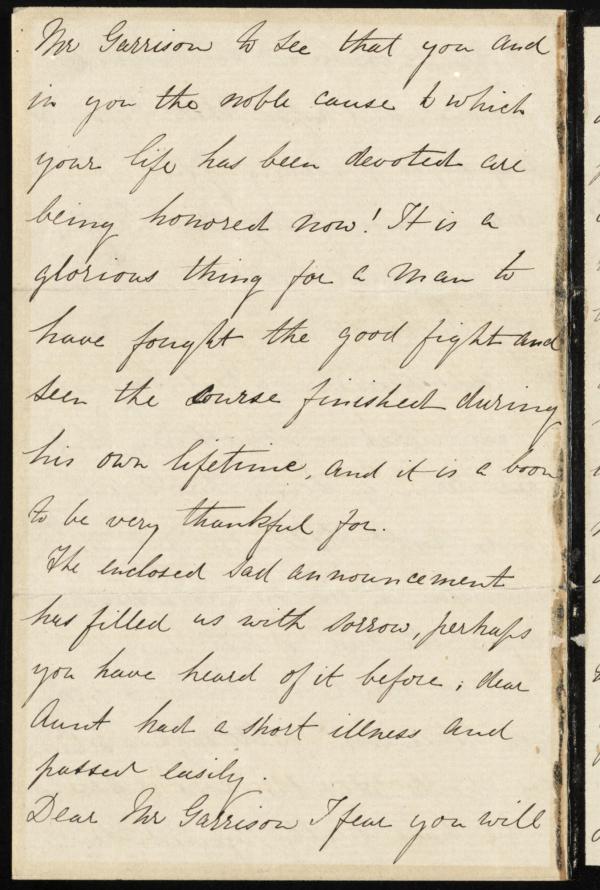 Mr Garrison to see that you and
in you the noble cause to which
your life has been devoted are
being honored now! It is a
glorious thing for a man to
have fought the good fight and
seen the course finished during
his own lifetime, and it is a boon
to be very thankful for.
The enclosed sad announcement
has filled us with sorrow, perhaps
you have heard of it before; dear
Aunt had a short illness and
passed easily.
Dear Mr Garrison I fear you will